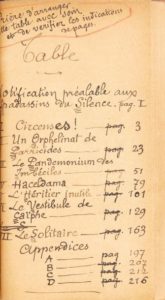 prière d'arranger
la table avec soin
et de vérifier les indications
de pages.
Table
Notification préalable aux
du Silence. pag. 1
I Circenses! pag. 3
Un Orphelinat de
Parricides pag. 23
Le Pandemonium des
Imbéciles pag. 51
Haceldama pag. 79
L'Héritier Inutile pag. 101
II Le Vestibule de
pag. 129
III Le Solitaire pag. 163
Appendices
A pag 197
B pag 202
C pag 212
D pag 216